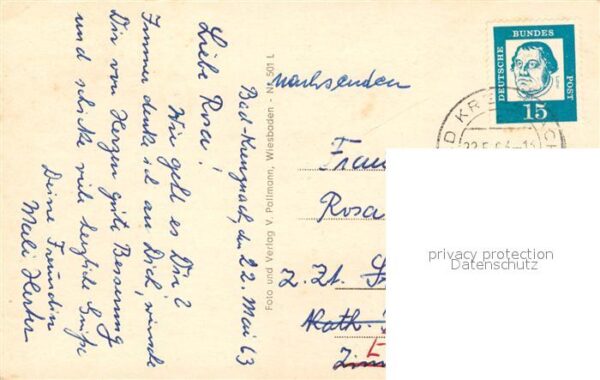 Bad-Kreuznach, den 22. Mai 63
Liebe Rosa!
Wie geht es Dir?
Immer denke ich an Dich, wünsche
Dir von Herzen gute Besserung
und schicke viele herzliche Grüße
Deine Freundin
Mali Herter
Foto und Verlag V. Pollmann, Wiesbaden - Nr. 501 L
nachsenden
Frau
Rosa
z. Zt.
Kath.
DEUTSCHE BUNDES POST
15
privacy protection
Datenschutz